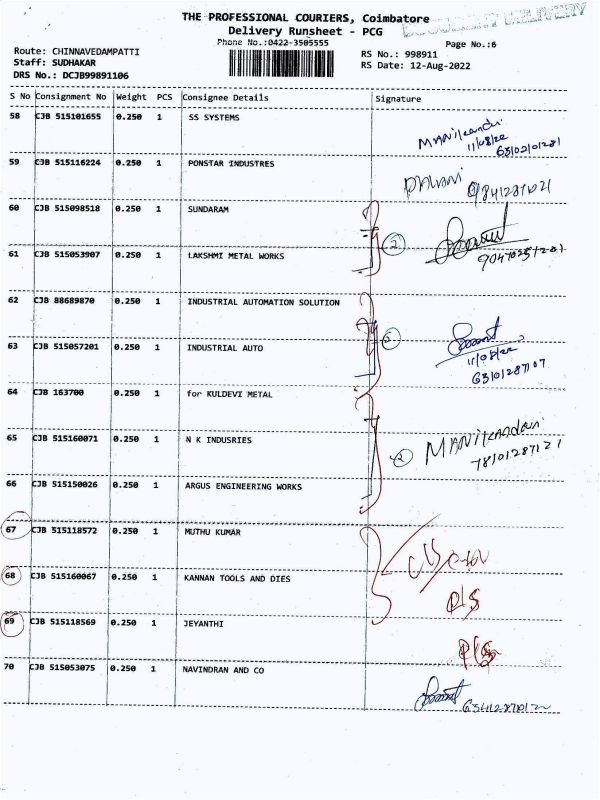 THE PROFESSIONAL COURIERS, Coimbatore
DOCUMENT DELIVERY
Delivery Runsheet - PCG
Phone No.:0422-3505555
Page No.:6
Route: CHINNAVEDAMPATTI
RS No.: 998911
Staff: SUDHAKAR
RS Date: 12-Aug-2022
DRS No.: DCJB99891106
S No Consignment No Weight PCS Consignee Details Signature
58 CJB 515101655 0.250 1 SS SYSTEMS
Manikandn
11/08/22
59 CJB 515116224 0.250 1 PONSTAR INDUSTRES
60 CJB 515098518 0.250 1 SUNDARAM
2
61 CJB 515053907 0.250 1 LAKSHMI METAL WORKS
62 CJB 88689870 0.250 1 INDUSTRIAL AUTOMATION SOLUTION
63 CJB 515057201 0.250 1 INDUSTRIAL AUTO
11/08/22
63101287107
64 CJB 163700 0.250 1 for KULDEVI METAL
65 CJB 515160071 0.250 1 N K INDUSRIES
2
MANikandan
78101287121
66 CJB 515150026 0.250 1 ARGUS ENGINEERING WORKS
67 CJB 515118572 0.250 1 MUTHU KUMAR
68 CJB 515160067 0.250 1 KANNAN TOOLS AND DIES
69 CJB 515118569 0.250 1 JEYANTHI
70 CJB 515053075 0.250 1 NAVINDRAN AND CO